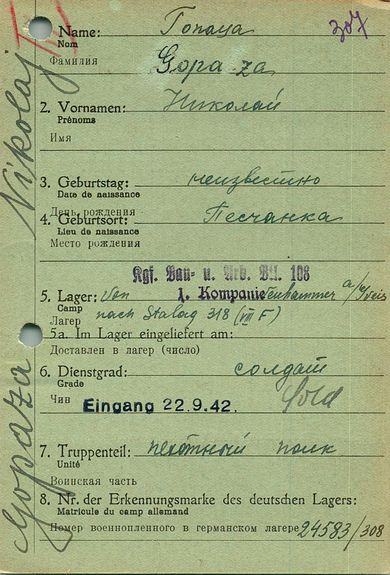 307
1. Name: Гопаца
Nom
Фамилия Gopaza
2. Vornamen: Николай
Prénoms
Имя
3. Geburtstag: неизвестно
Date de naissance
День рождения
4. Geburtsort: Песчанка
Lieu de naissance
Место рождения
Kgf. Bau- u. Arb. Btl. 108
1. Kompanie
5. Lager: von
Camp
Лагер nach Stalag 318 (VIII F)
5a. Im Lager eingeliefert am:
Доставлен в лагер (число)
6. Dienstgrad: солдат
Grade
Чин Sold
Eingang 22.9.42.
7. Truppenteil: пехотный полк
Unité
Воинская часть
8. Nr. der Erkennungsmarke des deutschen Lagers:
Matricule du camp allemand
Номер военнопленного в германском лагере 24583/308
Gopaza Nikolaj